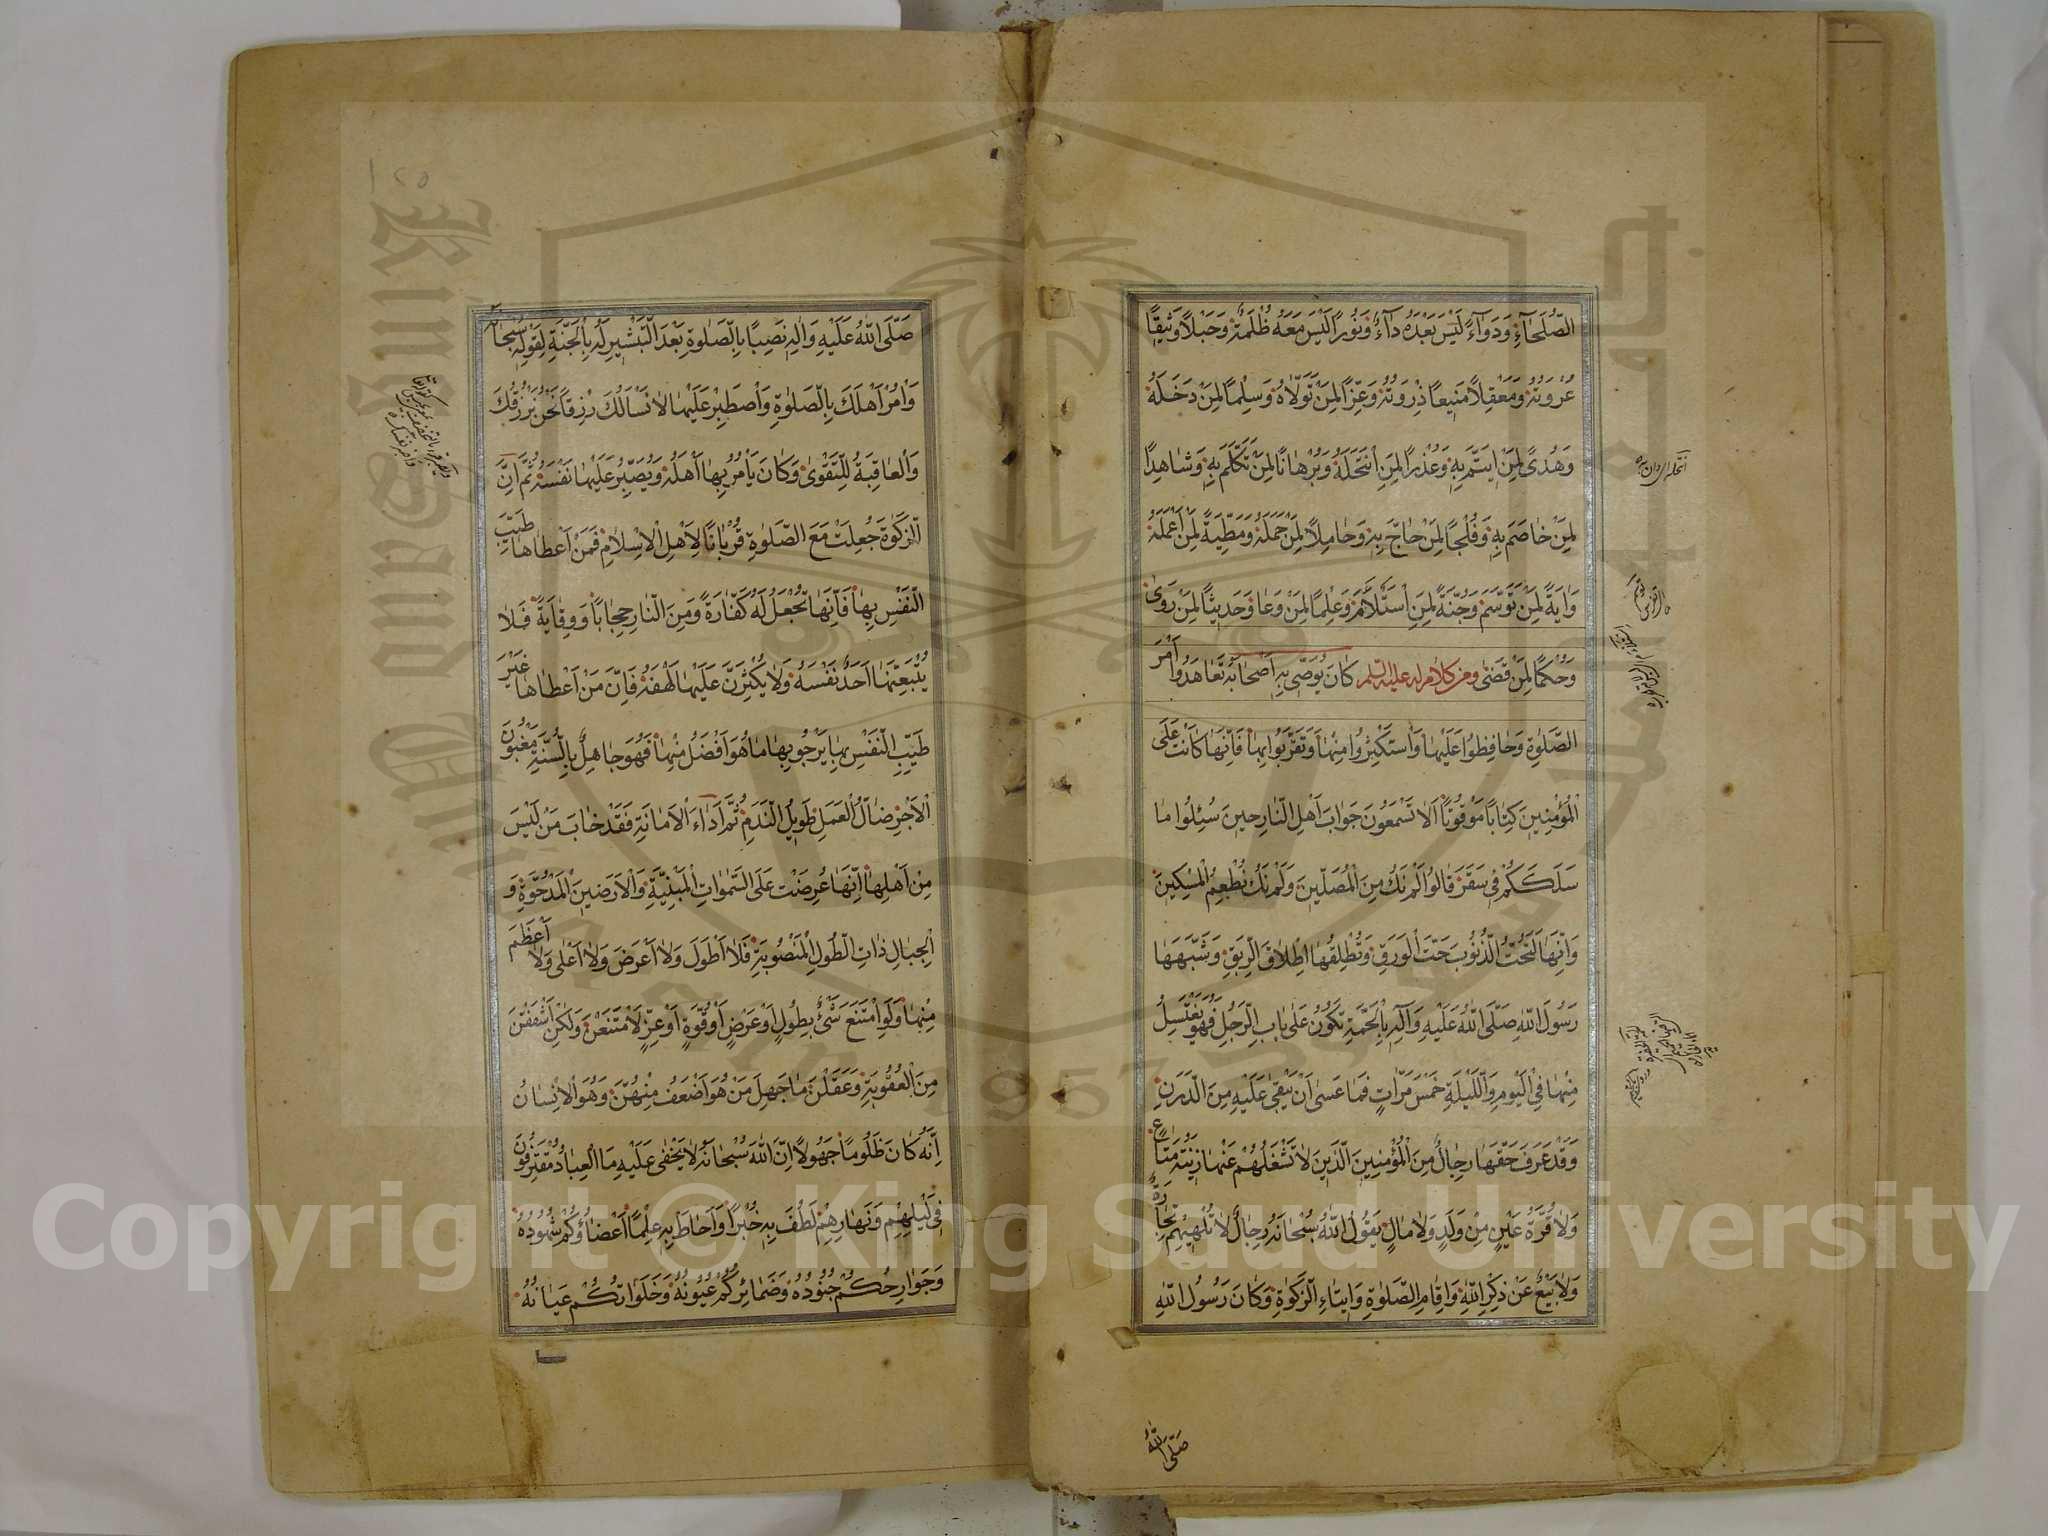 الصُّلَحَاءِ وَدَوَاءً لَيْسَ بَعْدَهُ دَاءٌ وَنُورًا لَيْسَ مَعَهُ ظُلْمَةٌ وَحَبْلًا وَثِيقًا
عُرْوَتُهُ وَمَعْقِلًا مَنِيعًا ذِرْوَتُهُ وَعِزًّا لِمَنْ تَوَلَّاهُ وَسِلْمًا لِمَنْ دَخَلَهُ
وَهُدًى لِمَنِ ايتَمَّ بِهِ وَعُذْرًا لِمَنِ انْتَحَلَهُ وَبُرْهَانًا لِمَنْ تَكَلَّمَ بِهِ وَشَاهِدًا
لِمَنْ خَاصَمَ بِهِ وَفُلْجًا لِمَنْ حَاجَّ بِهِ وَحَامِلًا لِمَنْ حَمَلَهُ وَمَطِيَّةً لِمَنْ اَعْمَلَهُ
وَايَةً لِمَنْ تَوَسَّمَ وَجُنَّةً لِمَنِ اسْتَلْأَمَ وَعِلْمًا لِمَنْ وَعَا وَحَدِيثًا لِمَنْ رَوَى
وَحُكْمًا لِمَنْ قَضَى ومن كلام له عليه السلم كَانَ يُوصِي بِهِ اَصْحَابَهُ تَعَاهَدُوا اَمْرَ
الصَّلوةِ وَحَافِظُوا عَلَيْهَا وَاسْتَكْثِرُوا مِنْهَا وَتَقَرَّبُوا بِهَا فَاِنَّهَا كَانَتْ عَلَى
الْمُؤْمِنِينَ كِتَابًا مَوْقُوتًا اَلَا تَسْمَعُونَ جَوَابَ اَهْلِ النَّارِ حِينَ سُئِلُوا مَا
سَلَكَكُمْ فِي سَقَرَ قَالُوا لَمْ نَكُ مِنَ الْمُصَلِّينَ وَلَمْ نَكُ نُطْعِمُ الْمِسْكِينَ
وَاِنَّهَا لَتَحُتُّ الذُّنُوبَ حَتَّ الْوَرَقِ وَتُطْلِقُهَا اِطْلَاقَ الرِّبَقِ وَشَبَّهَهَا
رَسُولُ اللهِ صَلَّى اللهُ عَلَيْهِ وَآلِهِ بِالْحَمَّةِ تَكُونُ عَلَى بَابِ الرَّجُلِ فَهُوَ يَغْتَسِلُ
مِنْهَا فِي الْيَوْمِ وَاللَّيْلَةِ خَمْسَ مَرَّاتٍ فَمَا عَسَى اَنْ يَبْقَى عَلَيْهِ مِنَ الدَّرَنِ
وَقَدْ عَرَفَ حَقَّهَا رِجَالٌ مِنَ الْمُؤْمِنِينَ الَّذِينَ لَا تَشْغَلُهُمْ عَنْهَا زِينَةُ مَتَاعٍ
وَلَا قُرَّةُ عَيْنٍ مِنْ وَلَدٍ وَلَا مَالٍ يَقُولُ اللهُ سُبْحَانَهُ رِجَالٌ لَا تُلْهِيهِمْ تِجَارَةٌ
وَلَا بَيْعٌ عَنْ ذِكْرِ اللهِ وَاِقَامِ الصَّلوةِ وَاِيتَاءِ الزَّكوةِ وَكَانَ رَسُولُ اللهِ
صَلَّى اللهُ
صَلَّى اللهُ عَلَيْهِ وَالِهِ نَصِبًا بِالصَّلوةِ بَعْدَ التَّبْشِيرِ لَهُ بِالْجَنَّةِ لِقَوْلِهِ سُبْحَانَهُ
وَأْمُرْ اَهْلَكَ بِالصَّلوةِ وَاصْطَبِرْ عَلَيْهَا لَا نَسْاَلُكَ رِزْقًا نَحْنُ نَرْزُقُكَ
وَالْعَاقِبَةُ لِلتَّقْوَى وَكَانَ يَأْمُرُ بِهَا اَهْلَهُ وَيُصَبِّرُ عَلَيْهَا نَفْسَهُ ثُمَّ اِنَّ
الزَّكوةَ جُعِلَتْ مَعَ الصَّلوةِ قُرْبَانًا لِاَهْلِ الْاِسْلَامِ فَمَنْ اَعْطَاهَا طَيِّبَ
النَّفْسِ بِهَا فَاِنَّهَا تُجْعَلُ لَهُ كَفَّارَةً وَمِنَ النَّارِ حِجَابًا وَوِقَايَةً فَلَا
يُتْبِعَنَّهَا اَحَدٌ نَفْسَهُ وَلَا يُكْثِرَنَّ عَلَيْهَا لَهَفَهُ فَاِنَّ مَنْ اَعْطَاهَا غَيْرَ
طَيِّبِ النَّفْسِ بِهَا يَرْجُو بِهَا مَا هُوَ اَفْضَلُ مِنْهَا فَهُوَ جَاهِلٌ بِالسُّنَّةِ مَغْبُونُ
الْاَجْرِ ضَالُّ الْعَمَلِ طَوِيلُ النَّدَمِ ثُمَّ اَدَاءَ الْاَمَانَةِ فَقَدْ خَابَ مَنْ لَيْسَ
مِنْ اَهْلِهَا اِنَّهَا عُرِضَتْ عَلَى السَّمَوَاتِ الْمَبْنِيَّةِ وَالْاَرَضِينَ الْمَدْحُوَّةِ وَ
الْجِبَالِ ذَاتِ الطُّولِ الْمَنْصُوبَةِ فَلَا اَطْوَلَ وَلَا اَعْرَضَ وَلَا اَعْلَى وَلَا اَعْظَمَ
مِنْهَا وَلَوِ امْتَنَعَ شَيْءٌ بِطُولٍ اَوْ عَرْضٍ اَوْ قُوَّةٍ اَوْ عِزٍّ لَامْتَنَعْنَ وَلَكِنْ اَشْفَقْنَ
مِنَ الْعُقُوبَةِ وَعَقَلْنَ مَا جَهِلَ مَنْ هُوَ اَضْعَفُ مِنْهُنَّ وَهُوَ الْاِنْسَانُ
اِنَّهُ كَانَ ظَلُومًا جَهُولًا اِنَّ اللهَ سُبْحَانَهُ لَا يَخْفَى عَلَيْهِ مَا الْعِبَادُ مُقْتَرِفُونَ
فِي لَيْلِهِمْ وَنَهَارِهِمْ لَطُفَ بِهِ خُبْرًا وَاَحَاطَ بِهِ عِلْمًا اَعْضَاؤُكُمْ شُهُودُهُ
وَجَوَارِحُكُمْ جُنُودُهُ وَضَمَائِرُكُمْ عُيُونُهُ وَخَلَوَاتُكُمْ عِيَانُهُ
١٢٥
Copyright © King Saud University
King Saud University
1957